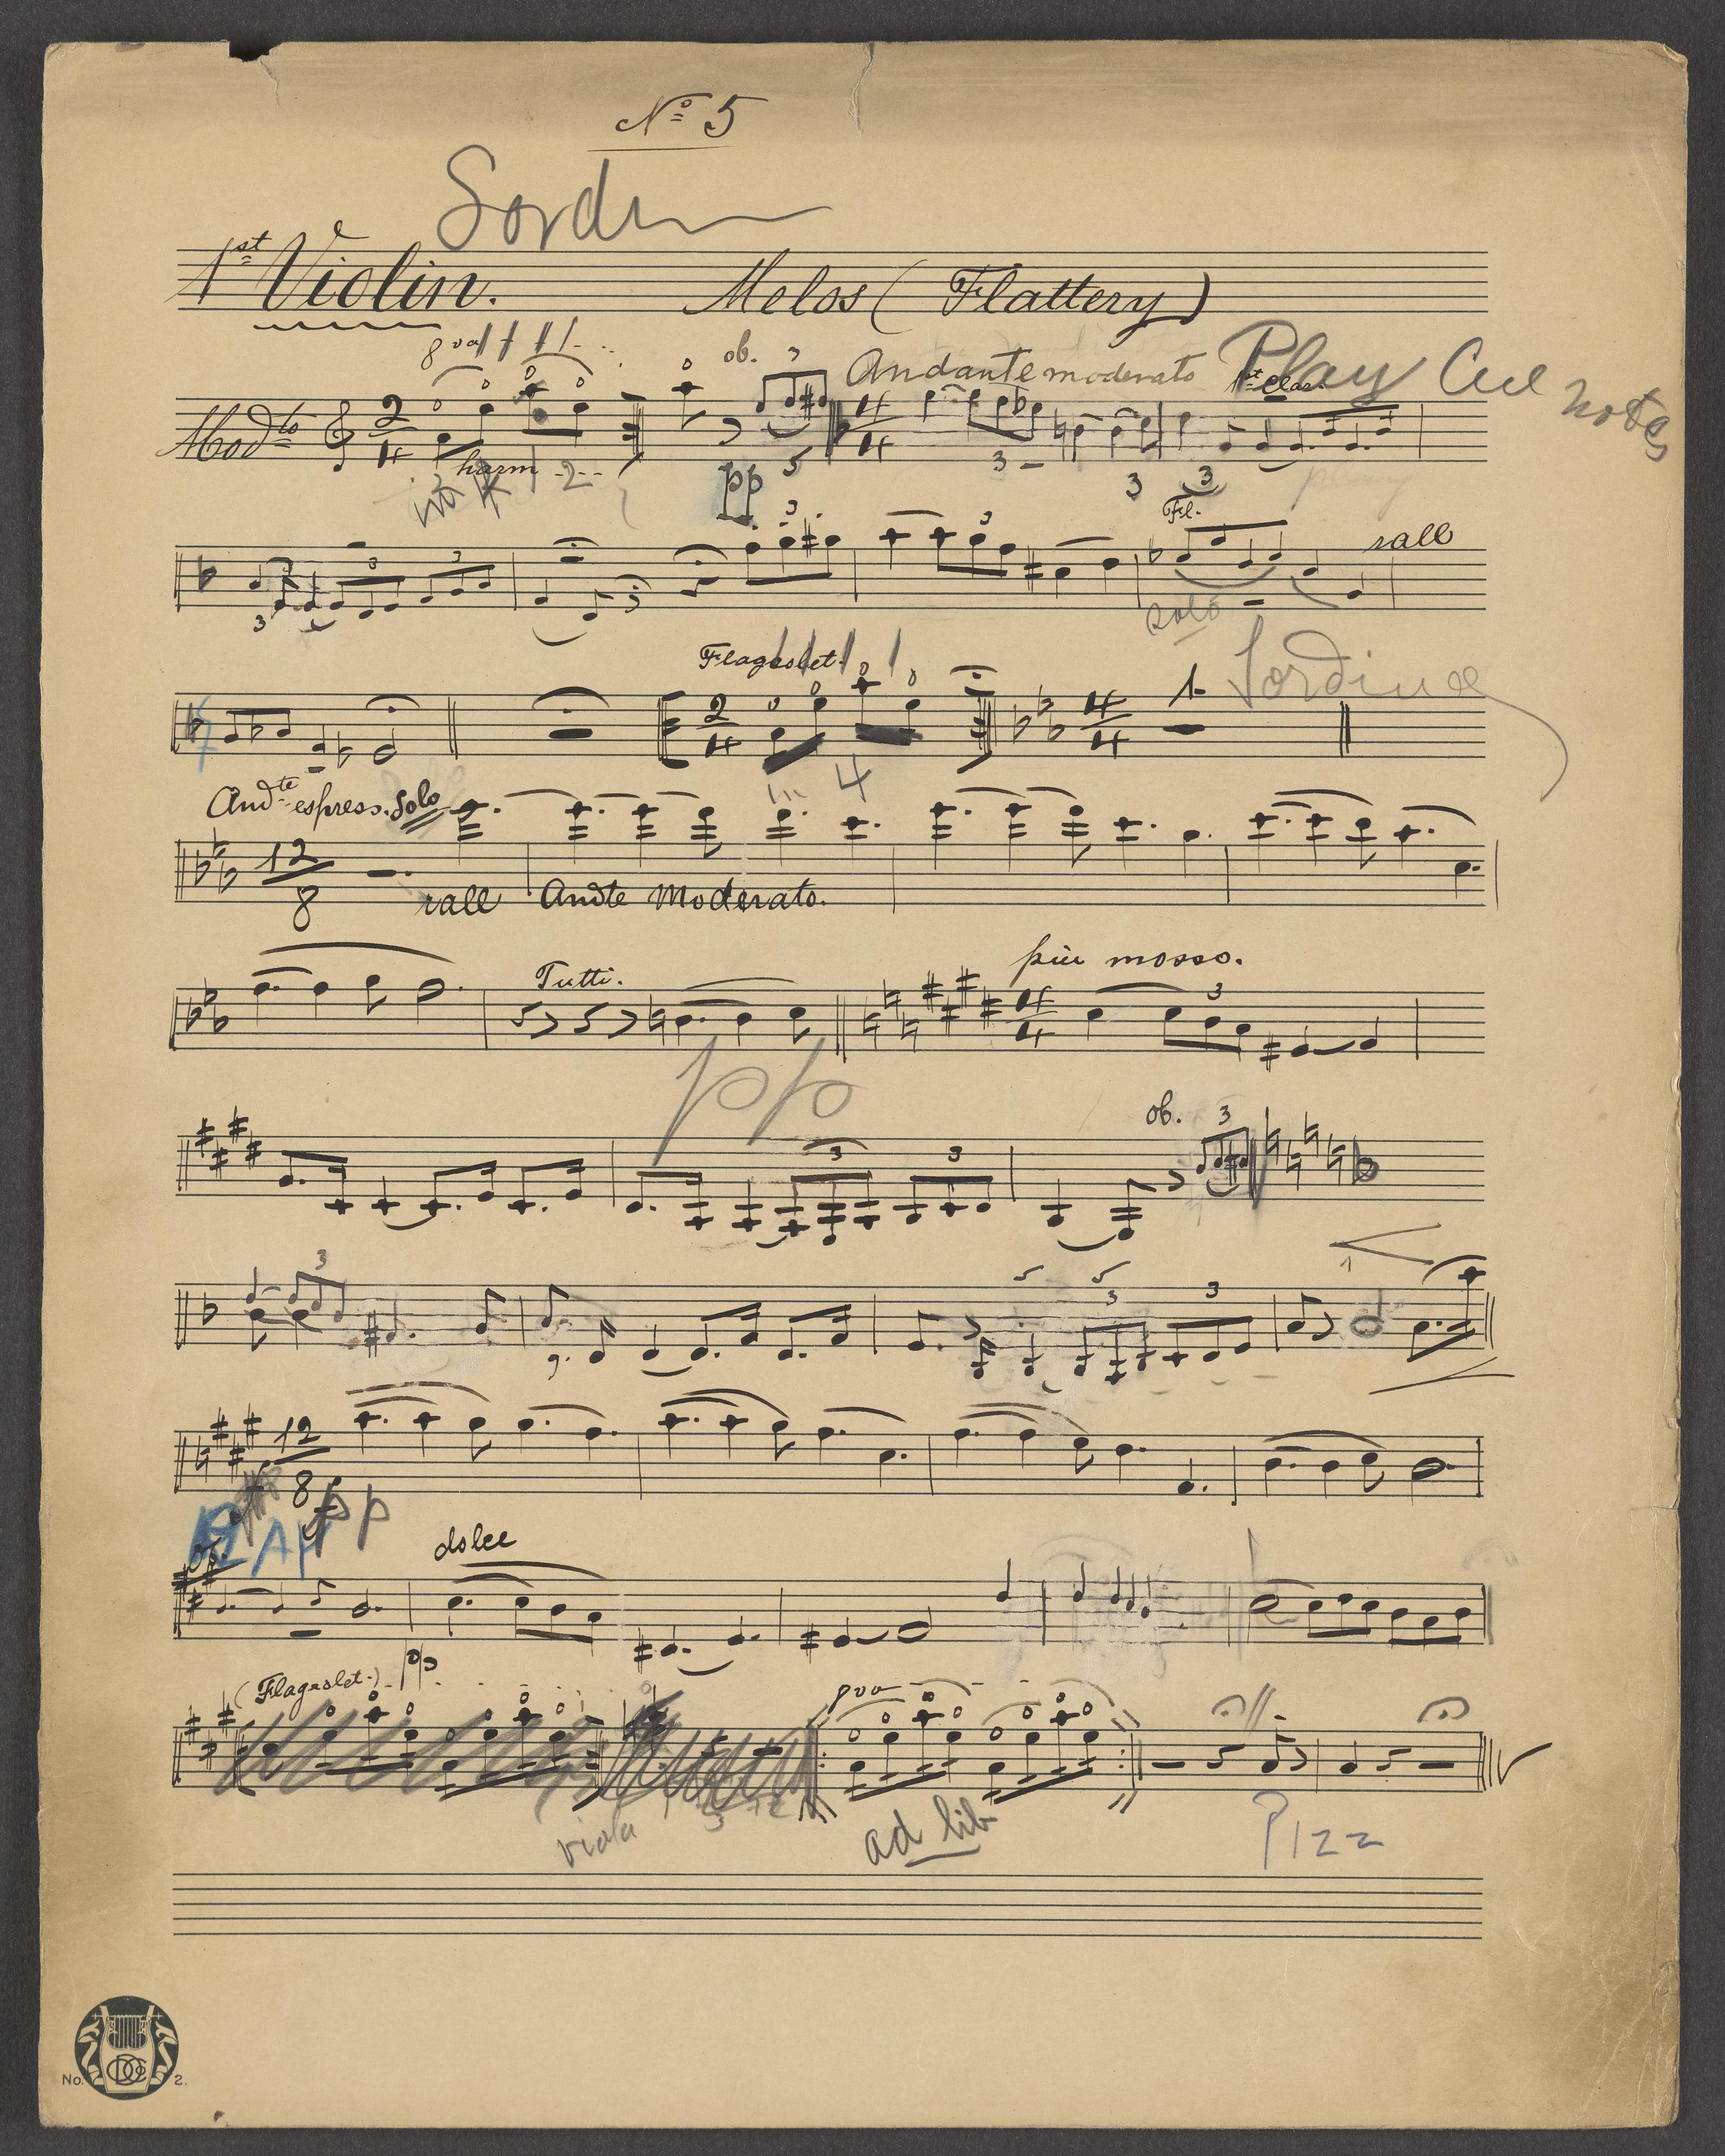 No 5
Sord
1st Violin. Melos (Flattery)
8va
ob. 3 Andante moderato Play Cue notes
1st Clar.
Modto 2 4 4 4
harm
pp 3 3 3
3 3 3 3 Fl. rall
3 solo
Flageolet. Sordine
2 4 4 4 1
4
Andte espress. Solo
12 8 rall Andte Moderato.
più mosso.
Tutti. 4 4 3
pp
ob. 3
3 3
3 3 3
12 8
pp
PLAY
dolce
pp
(Flageolet.) 8va
viola ad lib Pizz
No. 2.